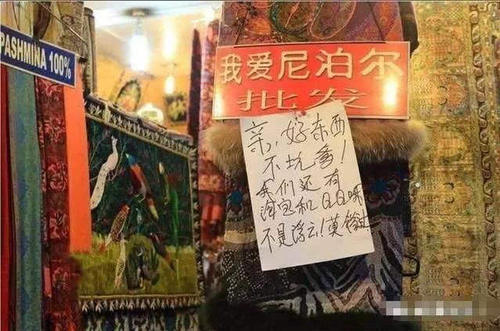 PASHMINA 100%
我爱尼泊尔
批发
亲,好东西
不坑爹!
我们还有
淘宝和QQ咪
不是浮云!莫错过